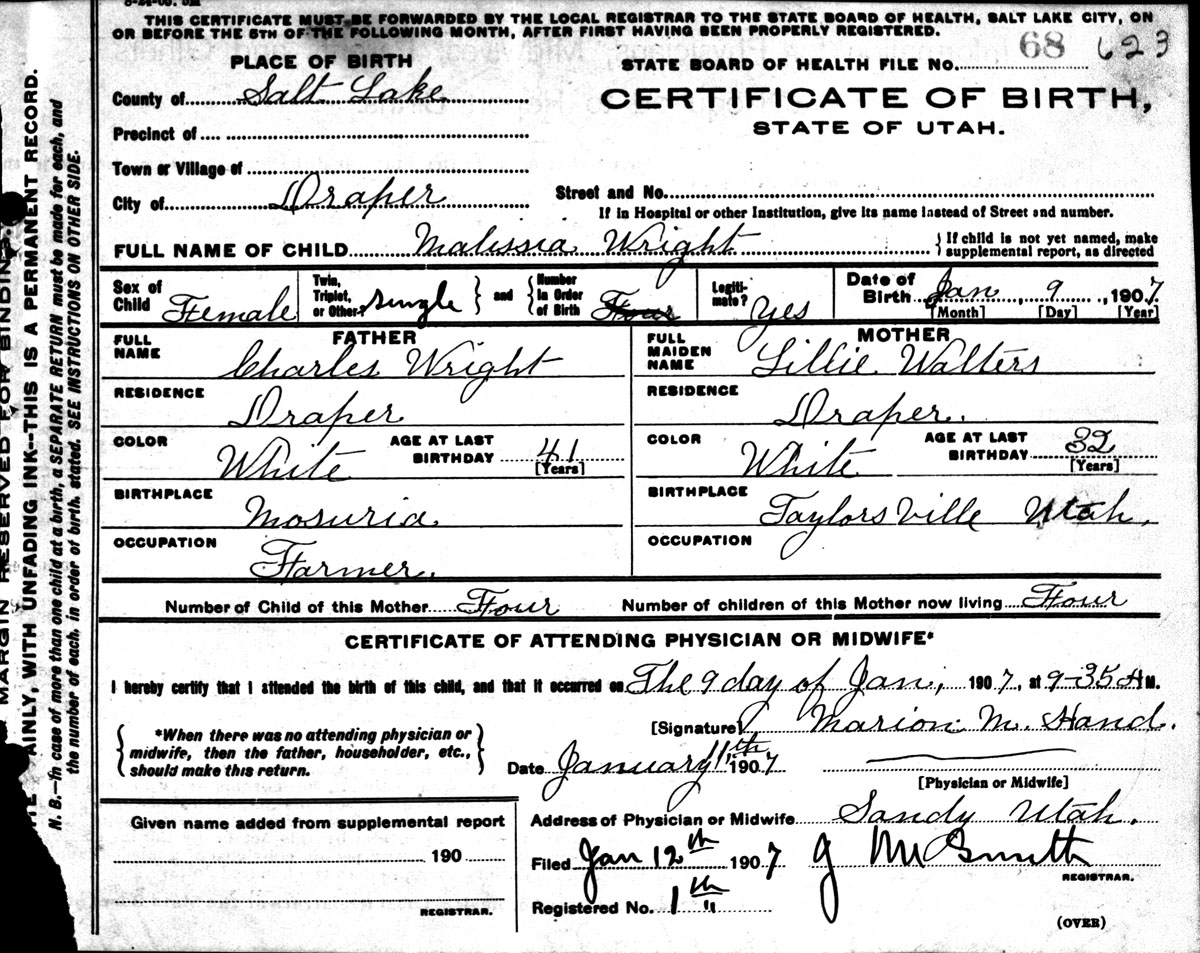 THIS CERTIFICATE MUST BE FORWARDED BY THE LOCAL REGISTRAR TO THE STATE BOARD OF HEALTH, SALT LAKE CITY, ON
OR BEFORE THE 5TH OF THE FOLLOWING MONTH, AFTER FIRST HAVING BEEN PROPERLY REGISTERED.
68 623
PLACE OF BIRTH
STATE BOARD OF HEALTH FILE NO.
County of Salt Lake
CERTIFICATE OF BIRTH,
STATE OF UTAH.
Precinct of
Town or Village of
City of Draper
Street and No.
If in Hospital or other Institution, give its name instead of Street and number.
FULL NAME OF CHILD Malissia Wright
{ If child is not yet named, make
supplemental report, as directed
Sex of Child Female
Twin, Triplet, or Other? single } and { Number in Order of Birth Four
Legiti-mate? Yes
Date of Birth Jan 9, 1907
[Month] [Day] [Year]
FATHER
MOTHER
FULL NAME Charles Wright
FULL MAIDEN NAME Lillie Walters
RESIDENCE Draper
RESIDENCE Draper.
COLOR White
AGE AT LAST BIRTHDAY 41 [Years]
COLOR White
AGE AT LAST BIRTHDAY 32 [Years]
BIRTHPLACE Mosuria
BIRTHPLACE Taylorsville Utah,
OCCUPATION Farmer.
OCCUPATION
Number of Child of this Mother Four
Number of children of this Mother now living Four
CERTIFICATE OF ATTENDING PHYSICIAN OR MIDWIFE*
I hereby certify that I attended the birth of this child, and that it occurred on The 9 day of Jan, 1907, at 9-35 A M.
{ *When there was no attending physician or
midwife, then the father, householder, etc.,
should make this return. }
[Signature] Marion M. Hand.
Date January 11th 1907
[Physician or Midwife]
Given name added from supplemental report
190
REGISTRAR.
Address of Physician or Midwife Sandy Utah.
Filed Jan 12th 1907 J M Smith
REGISTRAR.
Registered No. 1th
(OVER)
MARGIN RESERVED FOR BINDING.
AINLY, WITH UNFADING INK--THIS IS A PERMANENT RECORD.
N. B.--In case of more than one child at a birth, a SEPARATE RETURN must be made for each, and
the number of each, in order of birth, stated. SEE INSTRUCTIONS ON OTHER SIDE.